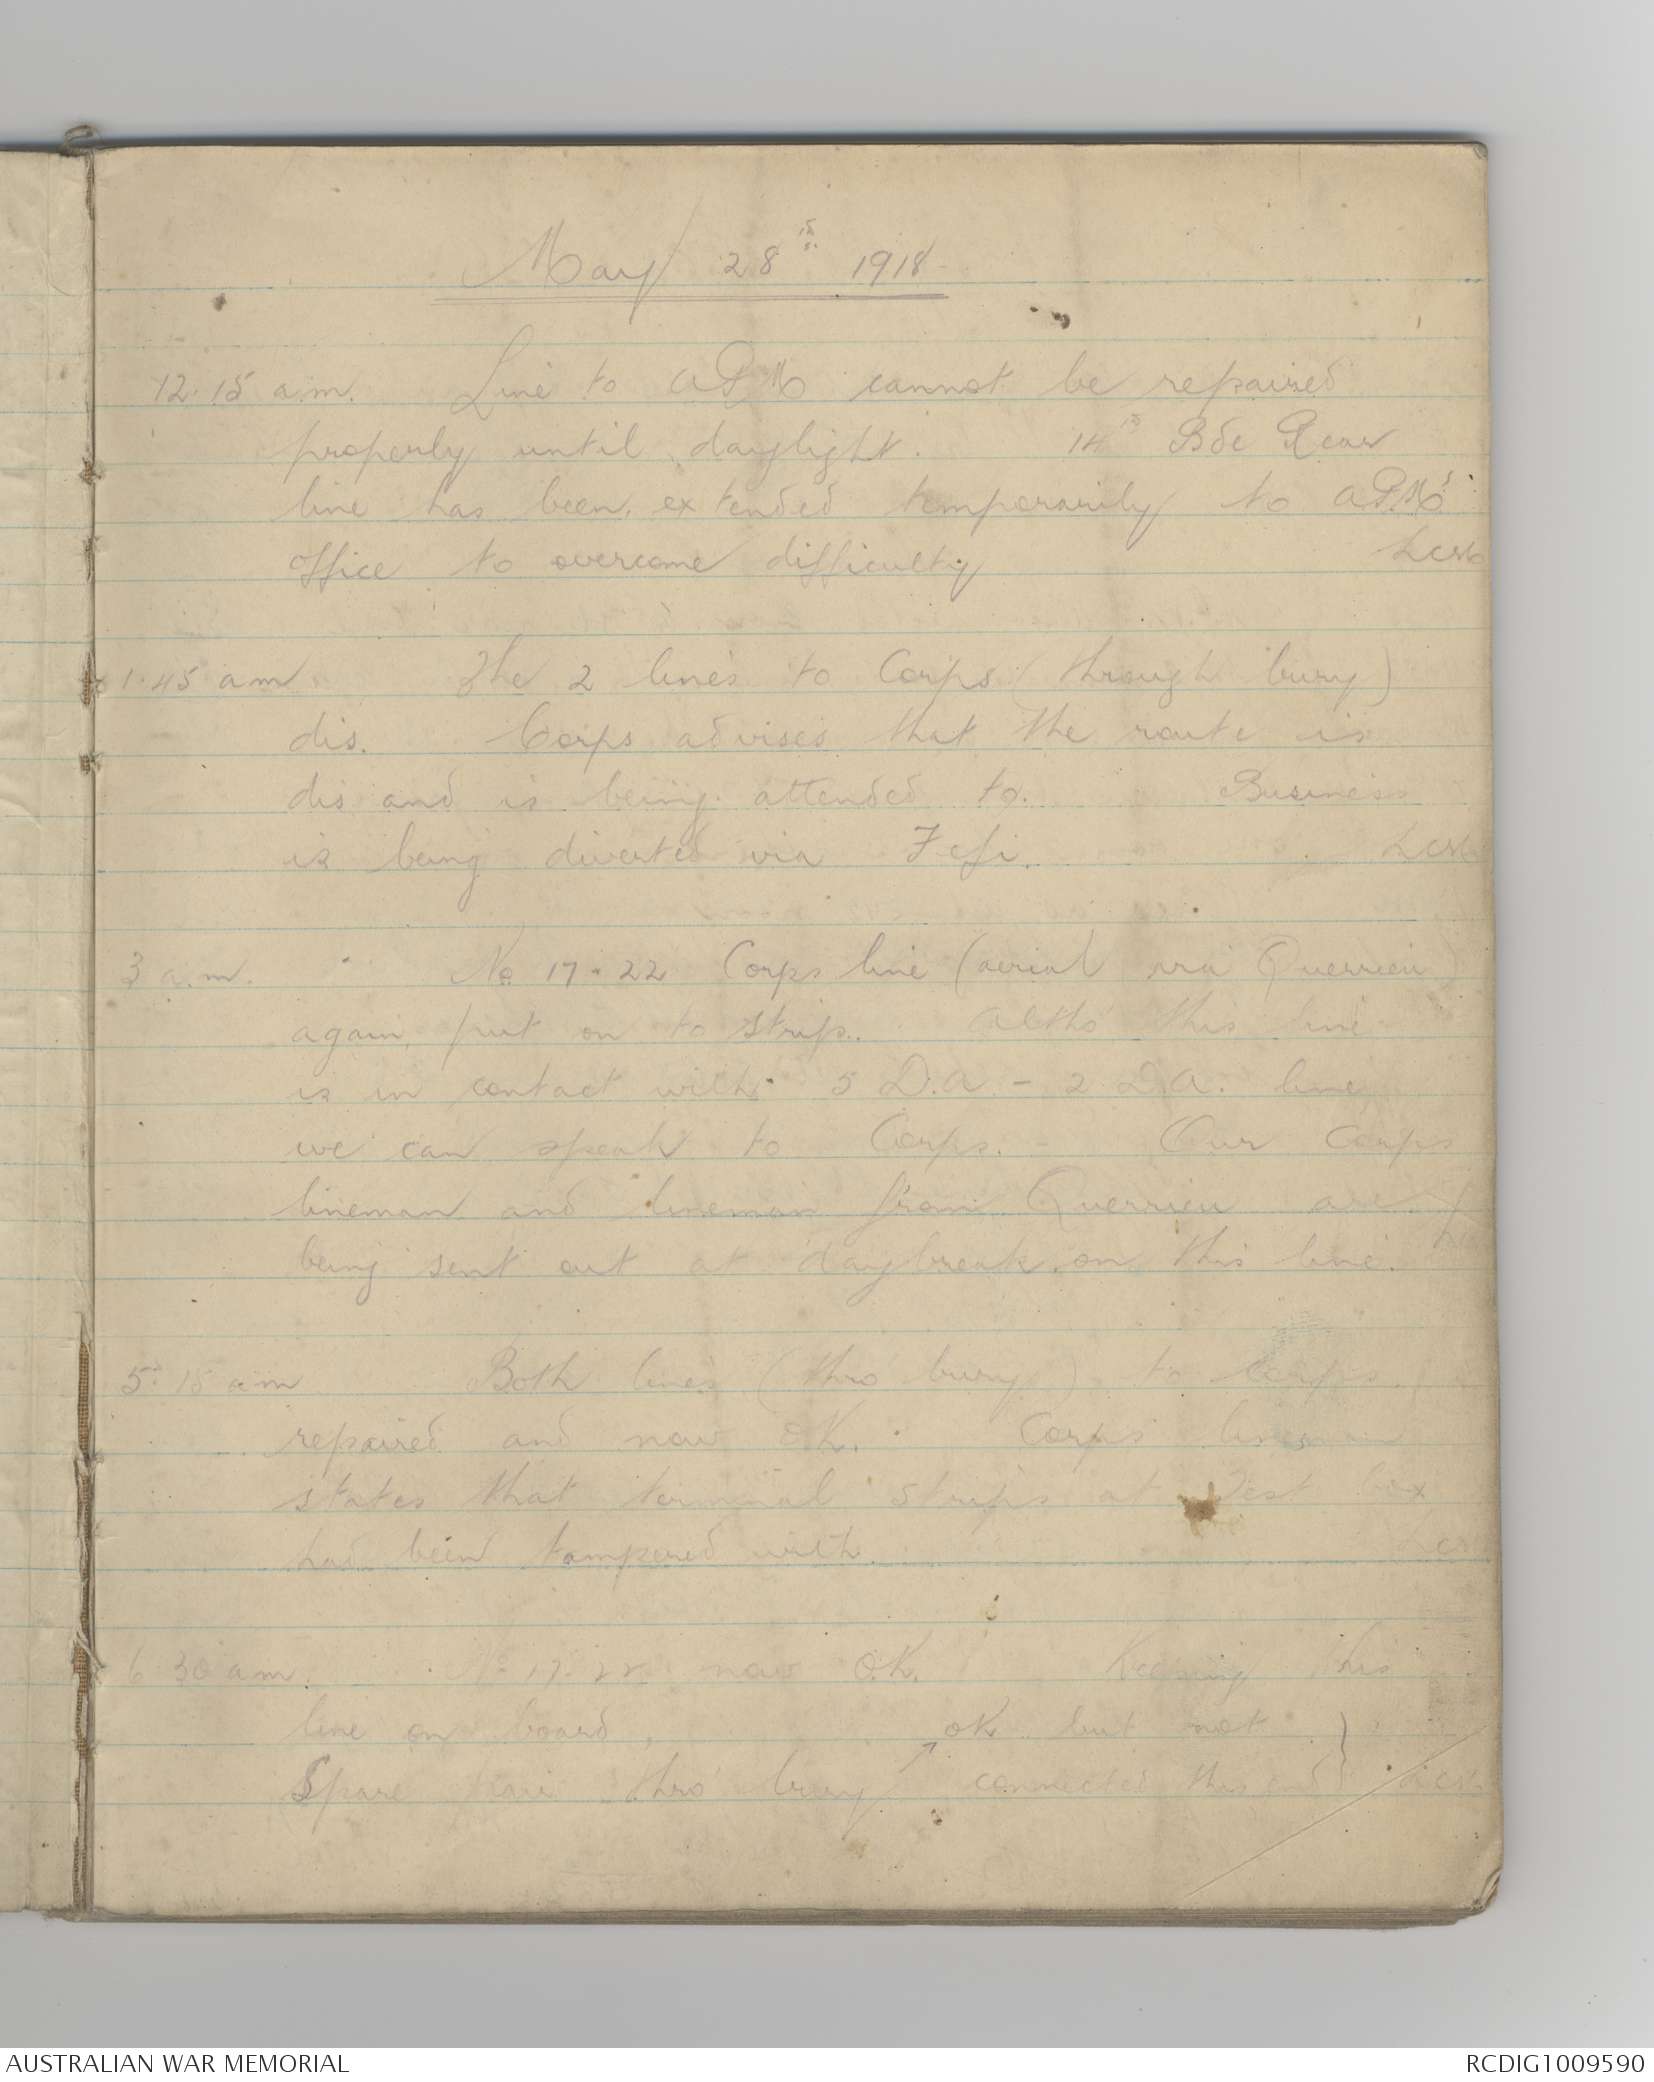 May 28th 1918
12.15 a.m. Line to APM cannot be repaired
properly until daylight. 14th Bde Rear
line has been extended temporarily to APM's
office to overcome difficulty
1.45 am The 2 lines to Corps (through bury)
dis. Corps advises that the route is
dis and is being attended to. Business
is being diverted via
3 a.m. No 17-22 Corps line (aerial via Querrieu)
again put on to strips. Altho' this line
is in contact with 5 D.A - 2 D.A. line
we can speak to Corps. - Our Corps
lineman and lineman from Querrieu are
being sent out at daybreak on this line.
5.15 am Both lines (thro' bury) to Corps
repaired and now OK. Corps lineman
states that terminal strips at Test box
had been tampered with.
6.30 am. No 17-22 now O.K. Keeping this
line on board, OK but not
Spare pair thro' bury connected this end
AUSTRALIAN WAR MEMORIAL
RCDIG1009590